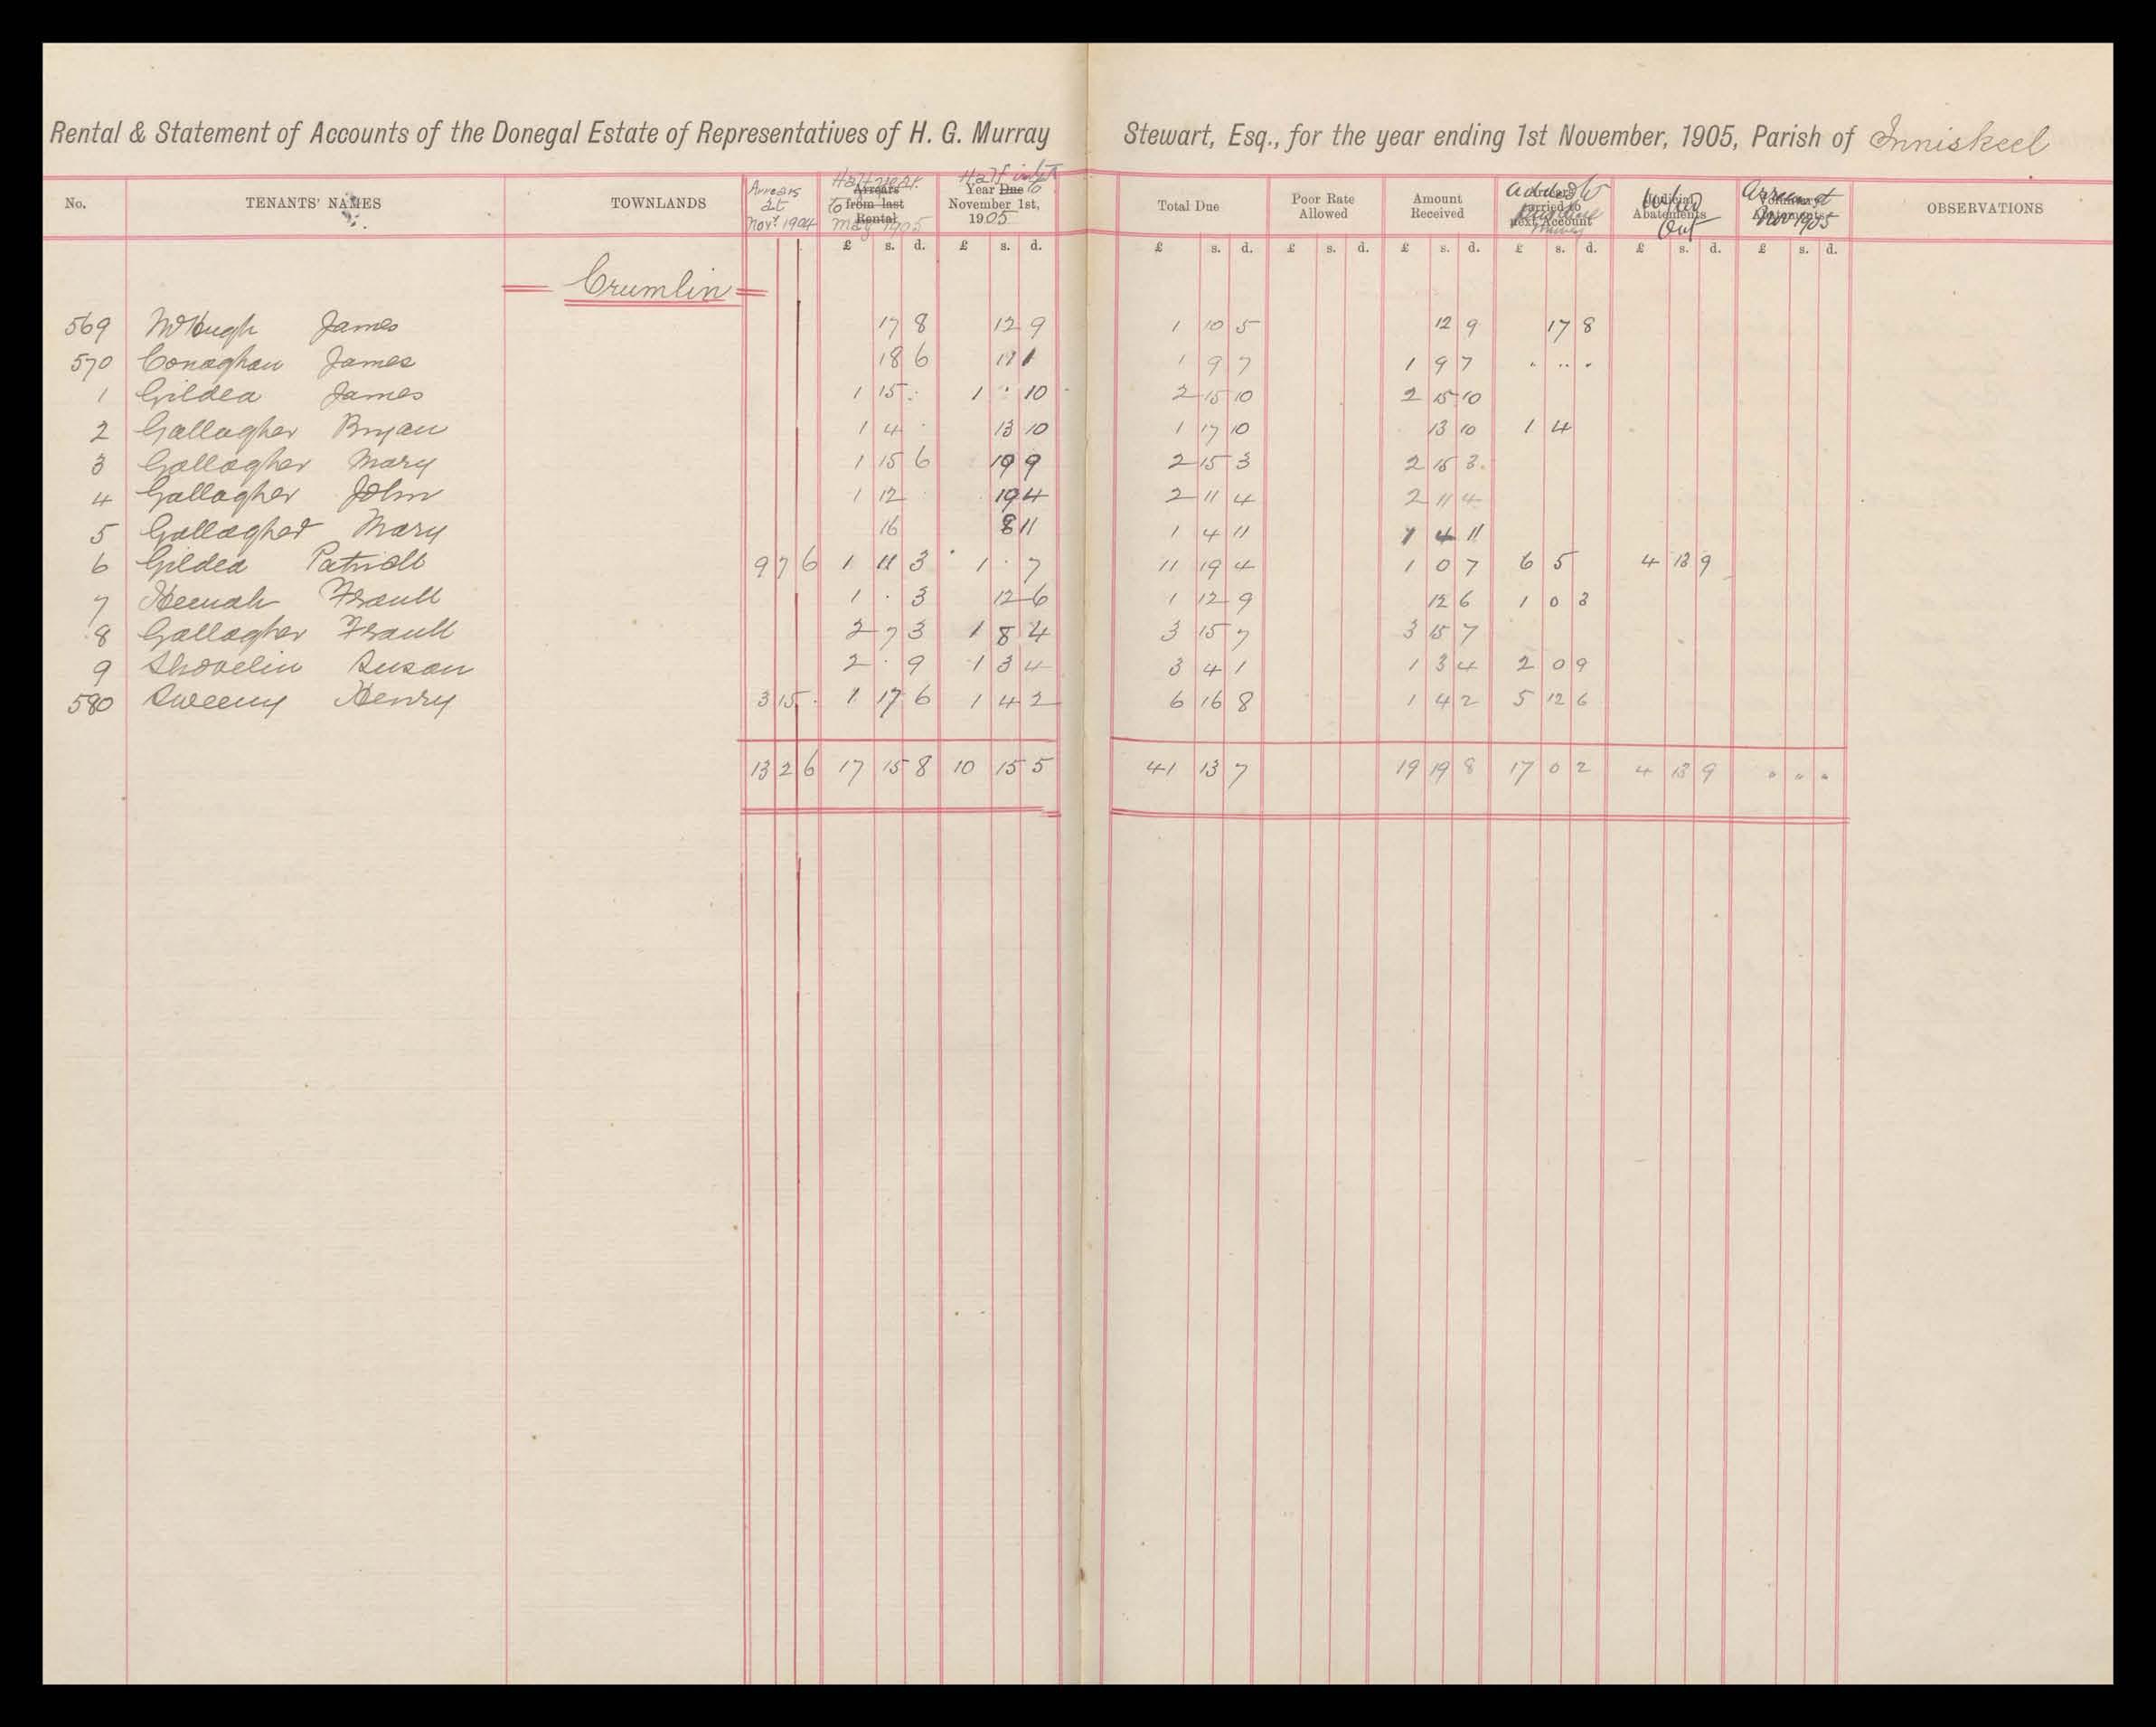 Rental & Statement of Accounts of the Donegal Estate of Representatives of H. G. Murray Stewart, Esq., for the year ending 1st November, 1905, Parish of Inniskeel
No. TENANTS' NAMES TOWNLANDS Arrears at Novr 1904 Half year to Arrears from last Rental May 1905 Half Year Due to November 1st, 1905 Total Due Poor Rate Allowed Amount Received Arrears carried to next Account added to Judicial Abatements Wiped Out Arrears at Nov 1905 OBSERVATIONS
£ s. d. £ s. d. £ s. d. £ s. d. £ s. d. £ s. d. £ s. d. £ s. d.
Crumlin
569 McHugh James 17 8 12 9 1 10 5 12 9 17 8
570 Conaghan James 18 6 11 1 1 9 7 1 9 7 " " "
1 Gildea James 1 15 . 1 . 10 2 15 10 2 15 10
2 Gallagher Bryan 1 4 . 13 10 1 17 10 13 10 1 4
3 Gallagher Mary 1 15 6 19 9 2 15 3 2 15 3
4 Gallagher John 1 12 . 19 4 2 11 4 2 11 4
5 Gallagher Mary 16 8 11 1 4 11 1 4 11
6 Gildea Patrick 9 7 6 1 11 3 1 . 7 11 19 4 1 0 7 6 5 4 13 9
7 Frank 1 . 3 12 6 1 12 9 12 6 1 0 3
8 Gallagher Frank 2 7 3 1 8 4 3 15 7 3 15 7
9 Shovelin Susan 2 . 9 1 3 4 3 4 1 1 3 4 2 0 9
580 Sweeny Henry 3 15 . 1 17 6 1 4 2 6 16 8 1 4 2 5 12 6
13 2 6 17 15 8 10 15 5 41 13 7 19 19 8 17 0 2 4 13 9 " " "